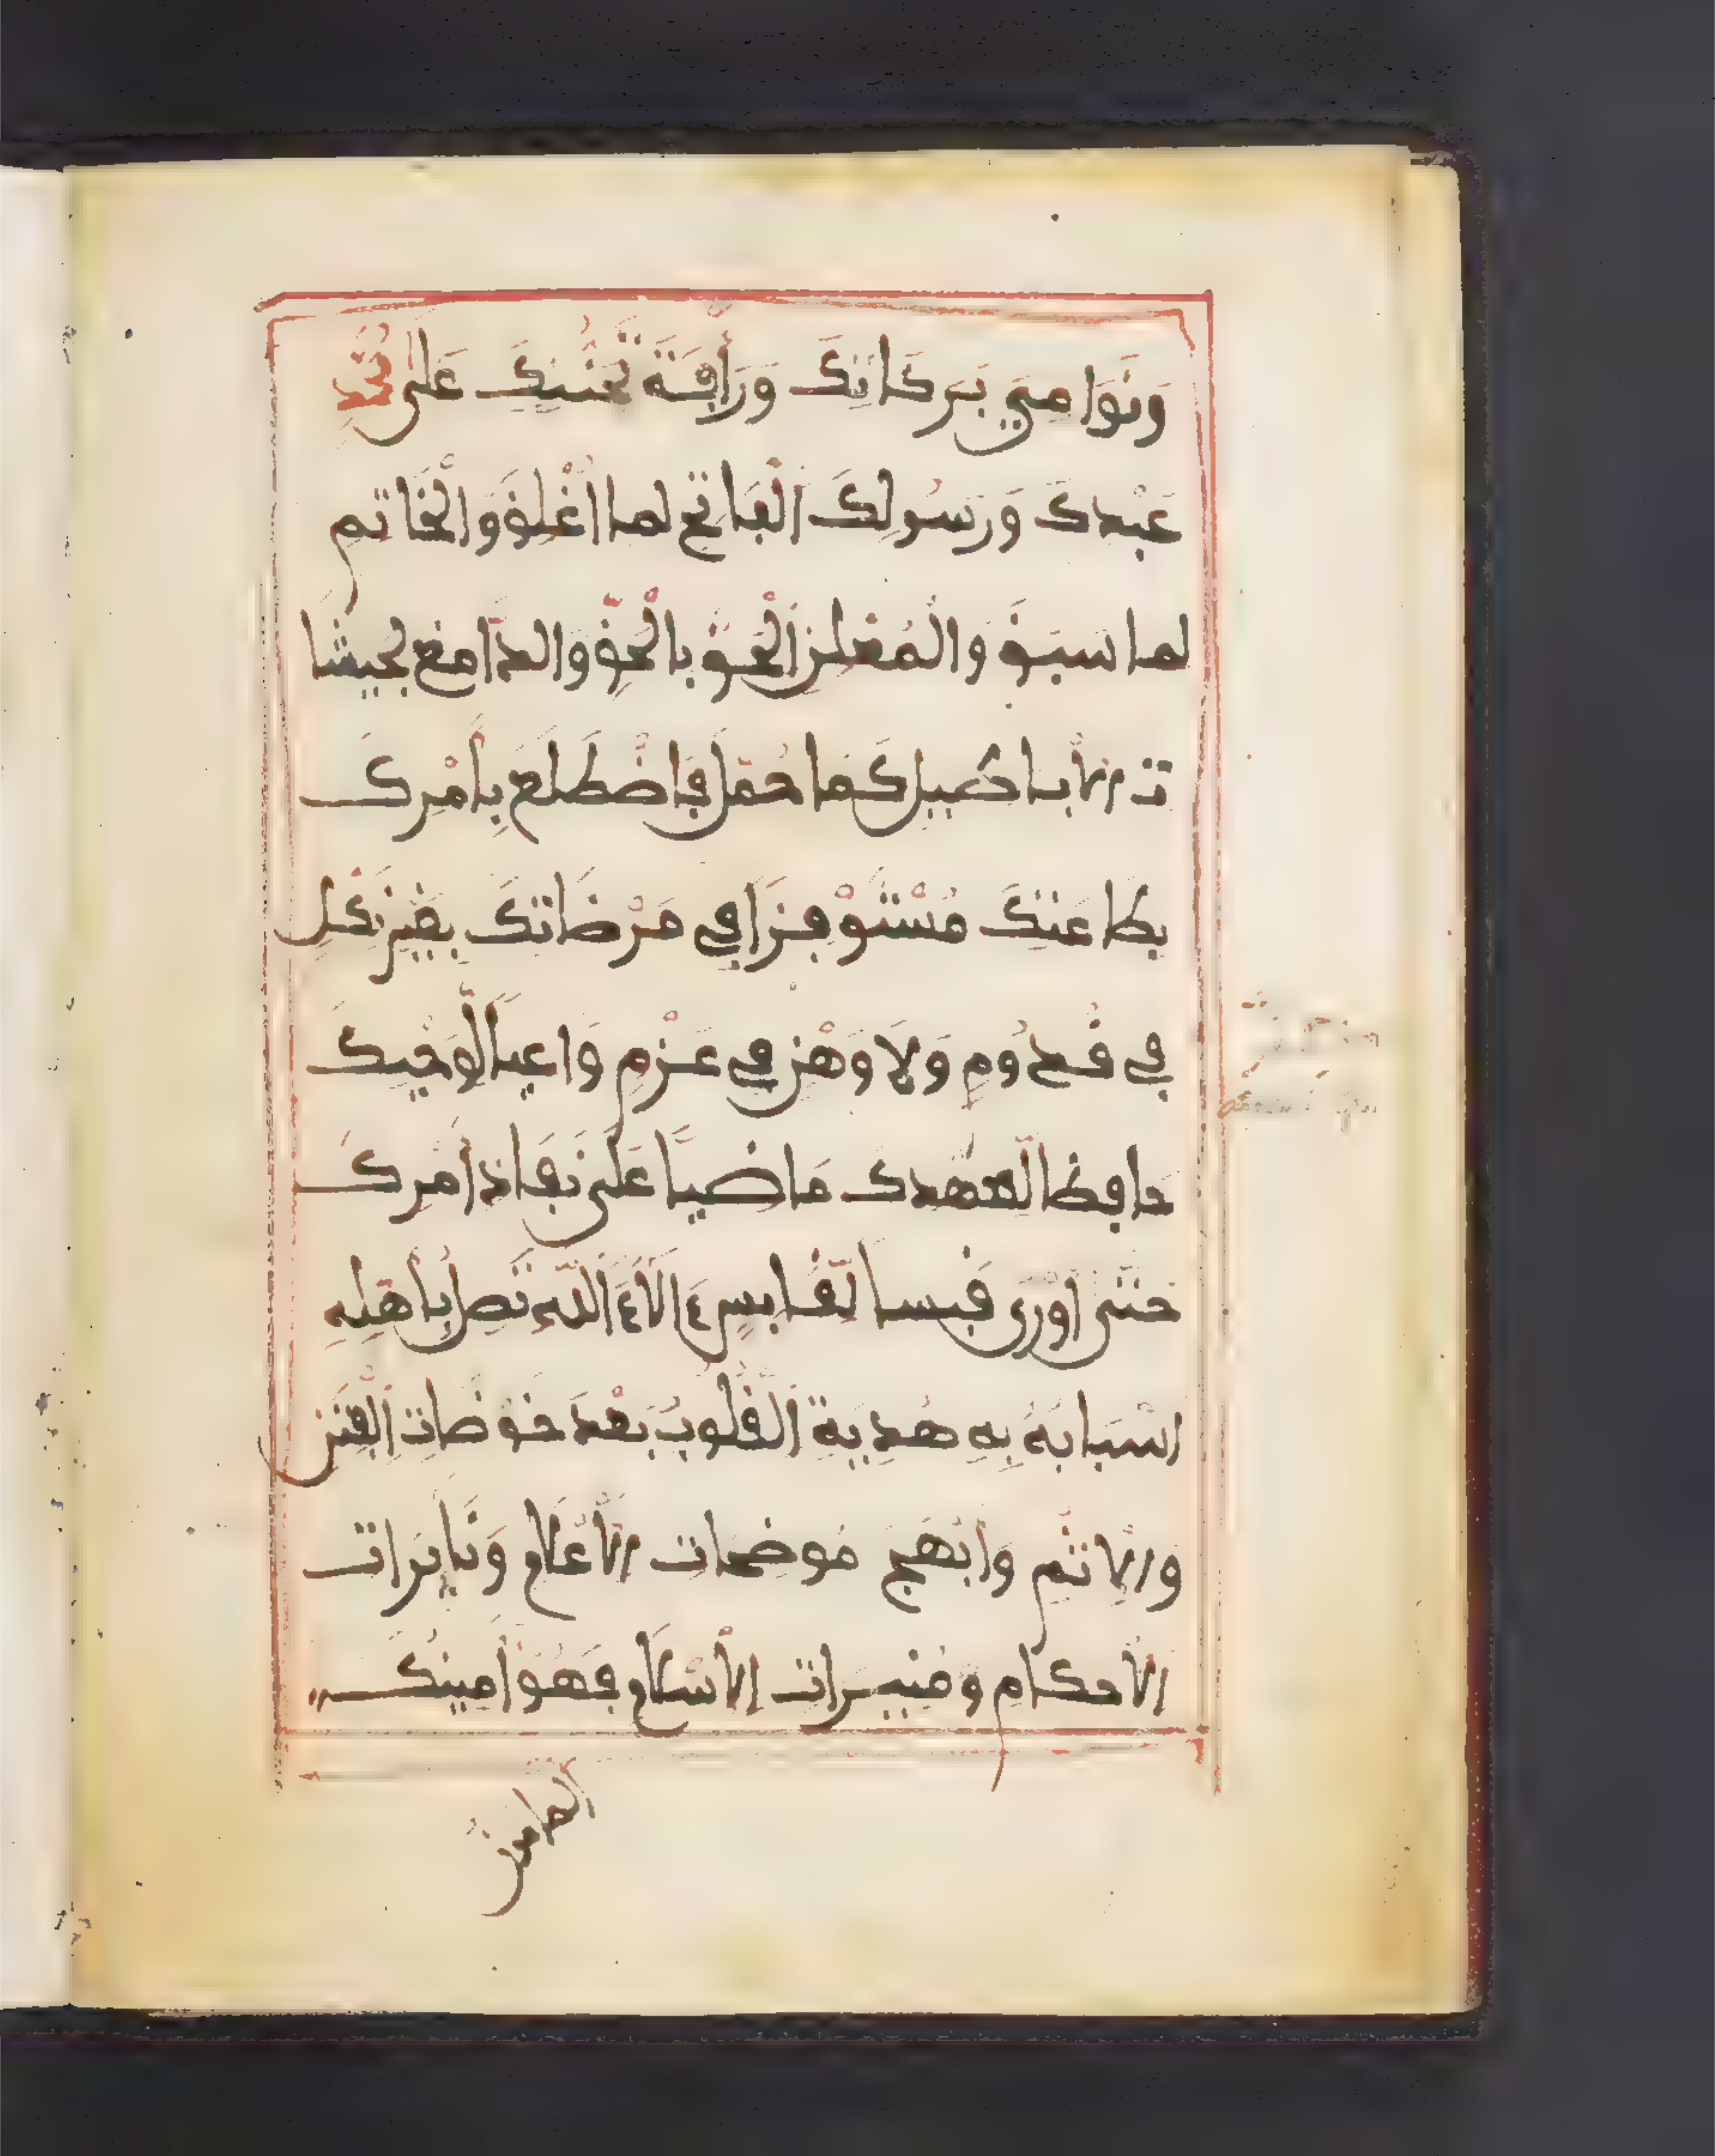 وَنَوَامِيَ بَرَكَاتِكَ وَرَأْفَةَ تَحَنُّنِكَ عَلَى مُحَمَّدٍ
عَبْدِكَ وَرَسُولِكَ الْفَاتِحِ لِمَا أُغْلِقَ وَالْخَاتِمِ
لِمَا سَبَقَ وَالْمُعْلِنِ الْحَقَّ بِالْحَقِّ وَالدَّامِغِ لِجَيْشَا
تِ الْأَبَاطِيلِ كَمَا حُمِّلَ فَاضْطَلَعَ بِأَمْرِكَ
بِطَاعَتِكَ مُسْتَوْفِزًا فِي مَرْضَاتِكَ بِغَيْرِ نَكَلٍ
فِي قُدُومٍ وَلَا وَهْنٍ فِي عَزْمٍ وَاعِيًا لِوَحْيِكَ
حَافِظًا لِعَهْدِكَ مَاضِيًا عَلَى نَفَاذِ أَمْرِكَ
حَتَّى أَوْرَى قَبَسًا لِقَابِسٍ ءَالَاءُ اللَّهِ تَصِلُ بِأَهْلِهِ
أَسْبَابَهُ بِهِ هُدِيَتِ الْقُلُوبُ بَعْدَ خَوْضَاتِ الْفِتَنِ
وَالْإِثْمِ وَأَبْهَجَ مُوضِحَاتِ الْأَعْلَامِ وَنَايِرَاتِ
الْأَحْكَامِ وَمُنِيرَاتِ الْإِسْلَامِ فَهُوَ أَمِينُكَ
المامون